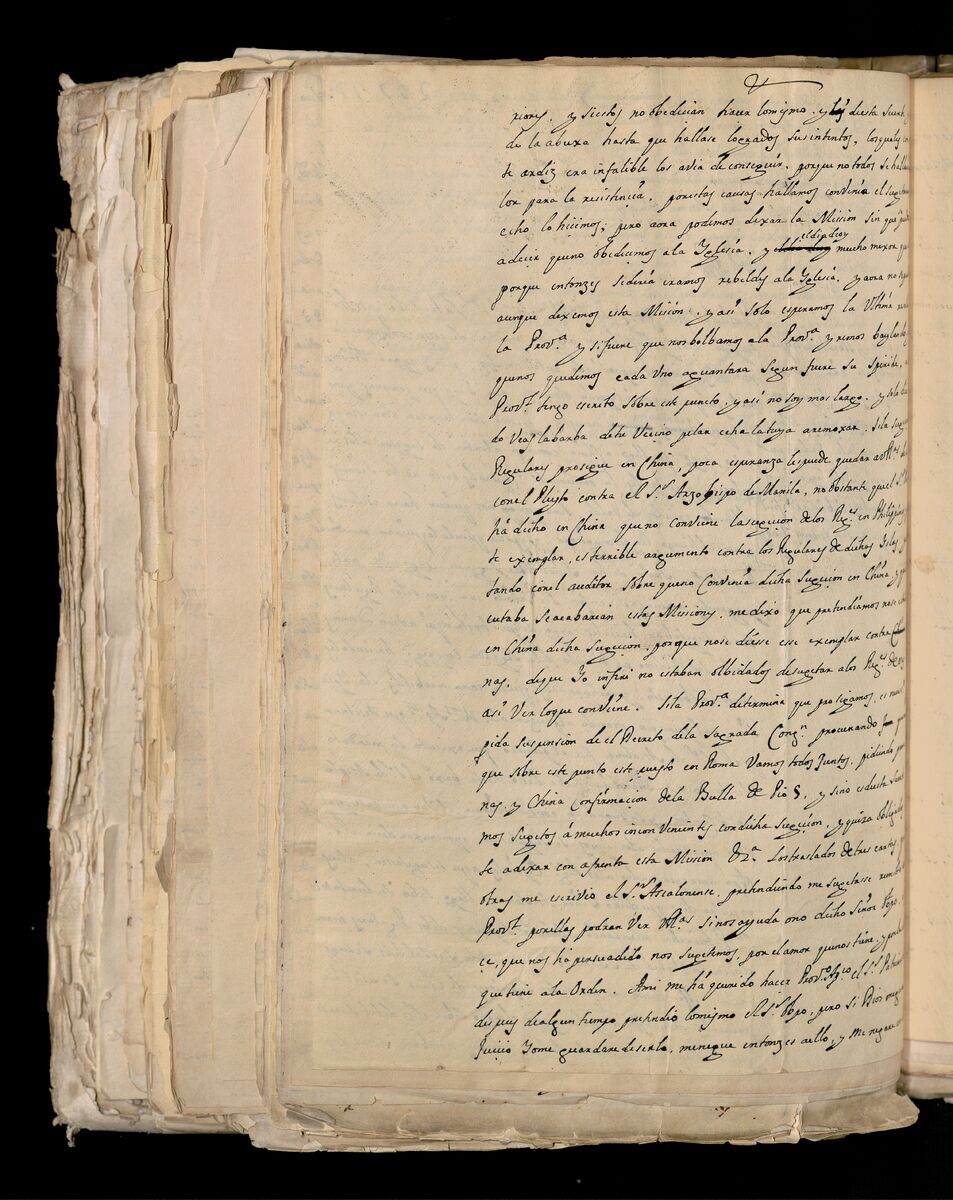 riores. y si estos no obedecian hacer lo mismo. y desta suerte
de la abuxa hasta que hallase logrados sus intentos, los quales
te ardiz era infalible los avia de conseguir. porque no todos se halla
lor para la resistencia. por estas causas hallamos convenia el sugetar
echo lo hicimos; pero aora podemos dexar la Mission sin que
a decir que no obedecemos a la Yglesia. y el dia de oy mucho mexor que
porque entonzes se diria eramos rebeldes a la Yglesia, y aora no
aunque dexemos esta Mission. y asi solo esperamos la Ultima
la Prov.ª y si fuere que nos bolbamos a la Prov.ª yremos baylando
que nos quedemos cada Uno aguantara segun fuere su spiritu.
Prov.l tengo escrito sobre este puncto. y asi no soy mas largo. y
do Veas la barba de tu Vecino pelar echa la tuya a remoxar. Si la
Regulares prosigue en China, poca esperanza les puede quedar a
con el Pleyto contra el S.r Arzobispo de Manila, no obstante que el S.r
ha dicho en China que no conviene la sugecion de los Reg.s en Philippinas
te exemplar, es terrible argumento contra los Regulares de dichas Islas, y
tando con el auditor sobre que no Convenia dicha Sugecion en China, y
cutaba se acabarian estas Missiones, me dixo que pretendiamos no se
en China dicha sugecion, porque no se diesse ese exemplar contra
nas. de que Yo inferi no estaban olbidados de sugetar a los Reg.s de
asi Ver lo que conviene. Si la Prov.ª determina que prosigamos, es
pida suspension de el Decreto de la Sagrada Cong.n procurando
que sobre este punto este puesto en Roma Vamos todos Juntos, pidiendo
nas, y China Confirmacion de la Bulla de Pio 5, y sino es desta
mos sugetos á muchos inconvenientes con dicha Sugecion, y quiza obligados
te a dexar con afrenta esta Mission &.ª Los traslados de tres cartas,
otras me escrivio el S.r Ascalonense, pretendiendo me sugetasse
Prov.l por ellas podran Ver si nos ayuda o no dicho Señor Obpo.
ce, que nos ha persuadido nos sugetemos, por el amor que nos tiene, y
que tiene a la Orden. A mi me há querido hacer Prov.º el S.r
despues de algun tiempo pretendio lo mismo el S.r Obpo, pero si Dios
Juicio Yo me guardare de serlo, me negue entonzes a ello, y me negare